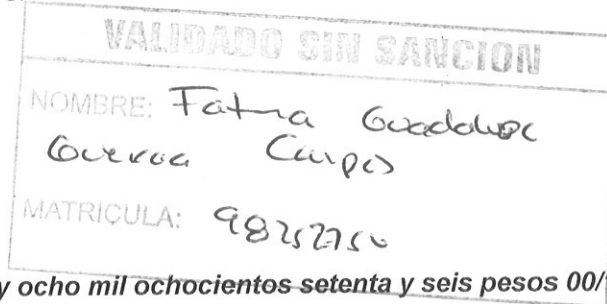 VALIDADO SIN SANCION
NOMBRE: Fatma Guadalupe
Guerra Campos
MATRICULA: 98252750
y ocho mil ochocientos setenta y seis pesos 00/